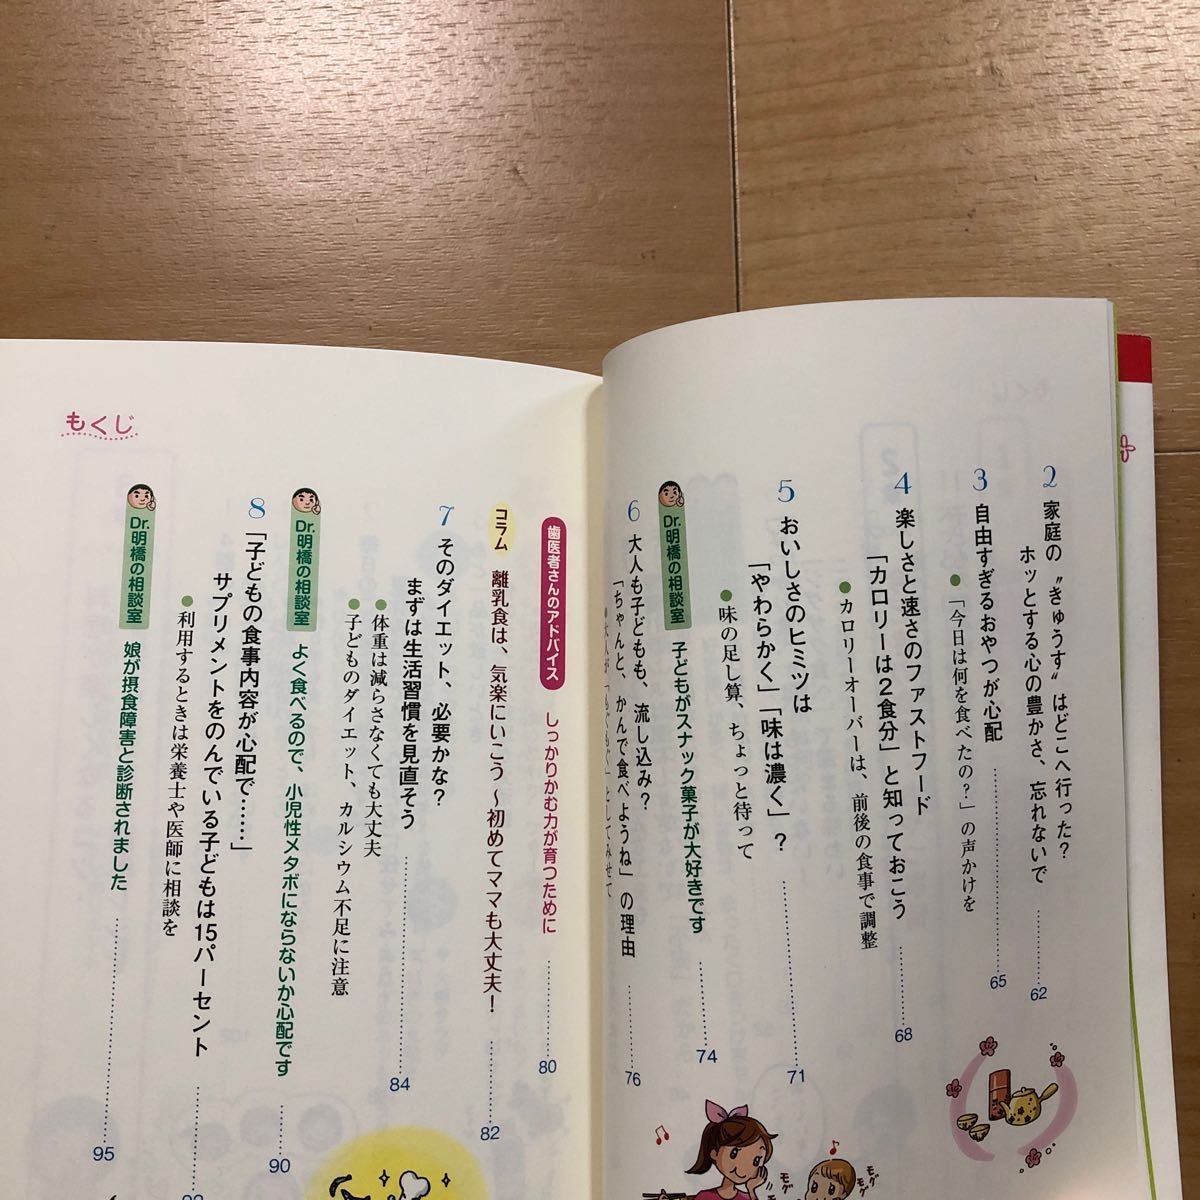 2 家庭の〝きゅうす〟はどこへ行った?
ホッとする心の豊かさ、忘れないで
62
3 自由すぎるおやつが心配
●「今日は何を食べたの?」の声かけを
65
4 楽しさと速さのファストフード
「カロリーは2食分」と知っておこう
●カロリーオーバーは、前後の食事で調整
68
5 おいしさのヒミツは
「やわらかく」「味は濃く」?
●味の足し算、ちょっと待って
71
Dr.明橋の相談室 子どもがスナック菓子が大好きです
74
6 大人も子どもも、流し込み?
「ちゃんと、かんで食べようね」の理由
76
●大人が「もぐもぐ」としてみせて
モグ
モグ
モグ
モグ
もくじ
歯医者さんのアドバイス しっかりかむ力が育つために
80
コラム 離乳食は、気楽にいこう ~初めてママも大丈夫!
82
7 そのダイエット、必要かな?
まずは生活習慣を見直そう
84
●体重は減らさなくても大丈夫
●子どものダイエット、カルシウム不足に注意
Dr.明橋の相談室 よく食べるので、小児性メタボにならないか心配です
90
8 「子どもの食事内容が心配で……」
サプリメントをのんでいる子どもは15パーセント
●利用するときは栄養士や医師に相談を
Dr.明橋の相談室 娘が摂食障害と診断されました
95